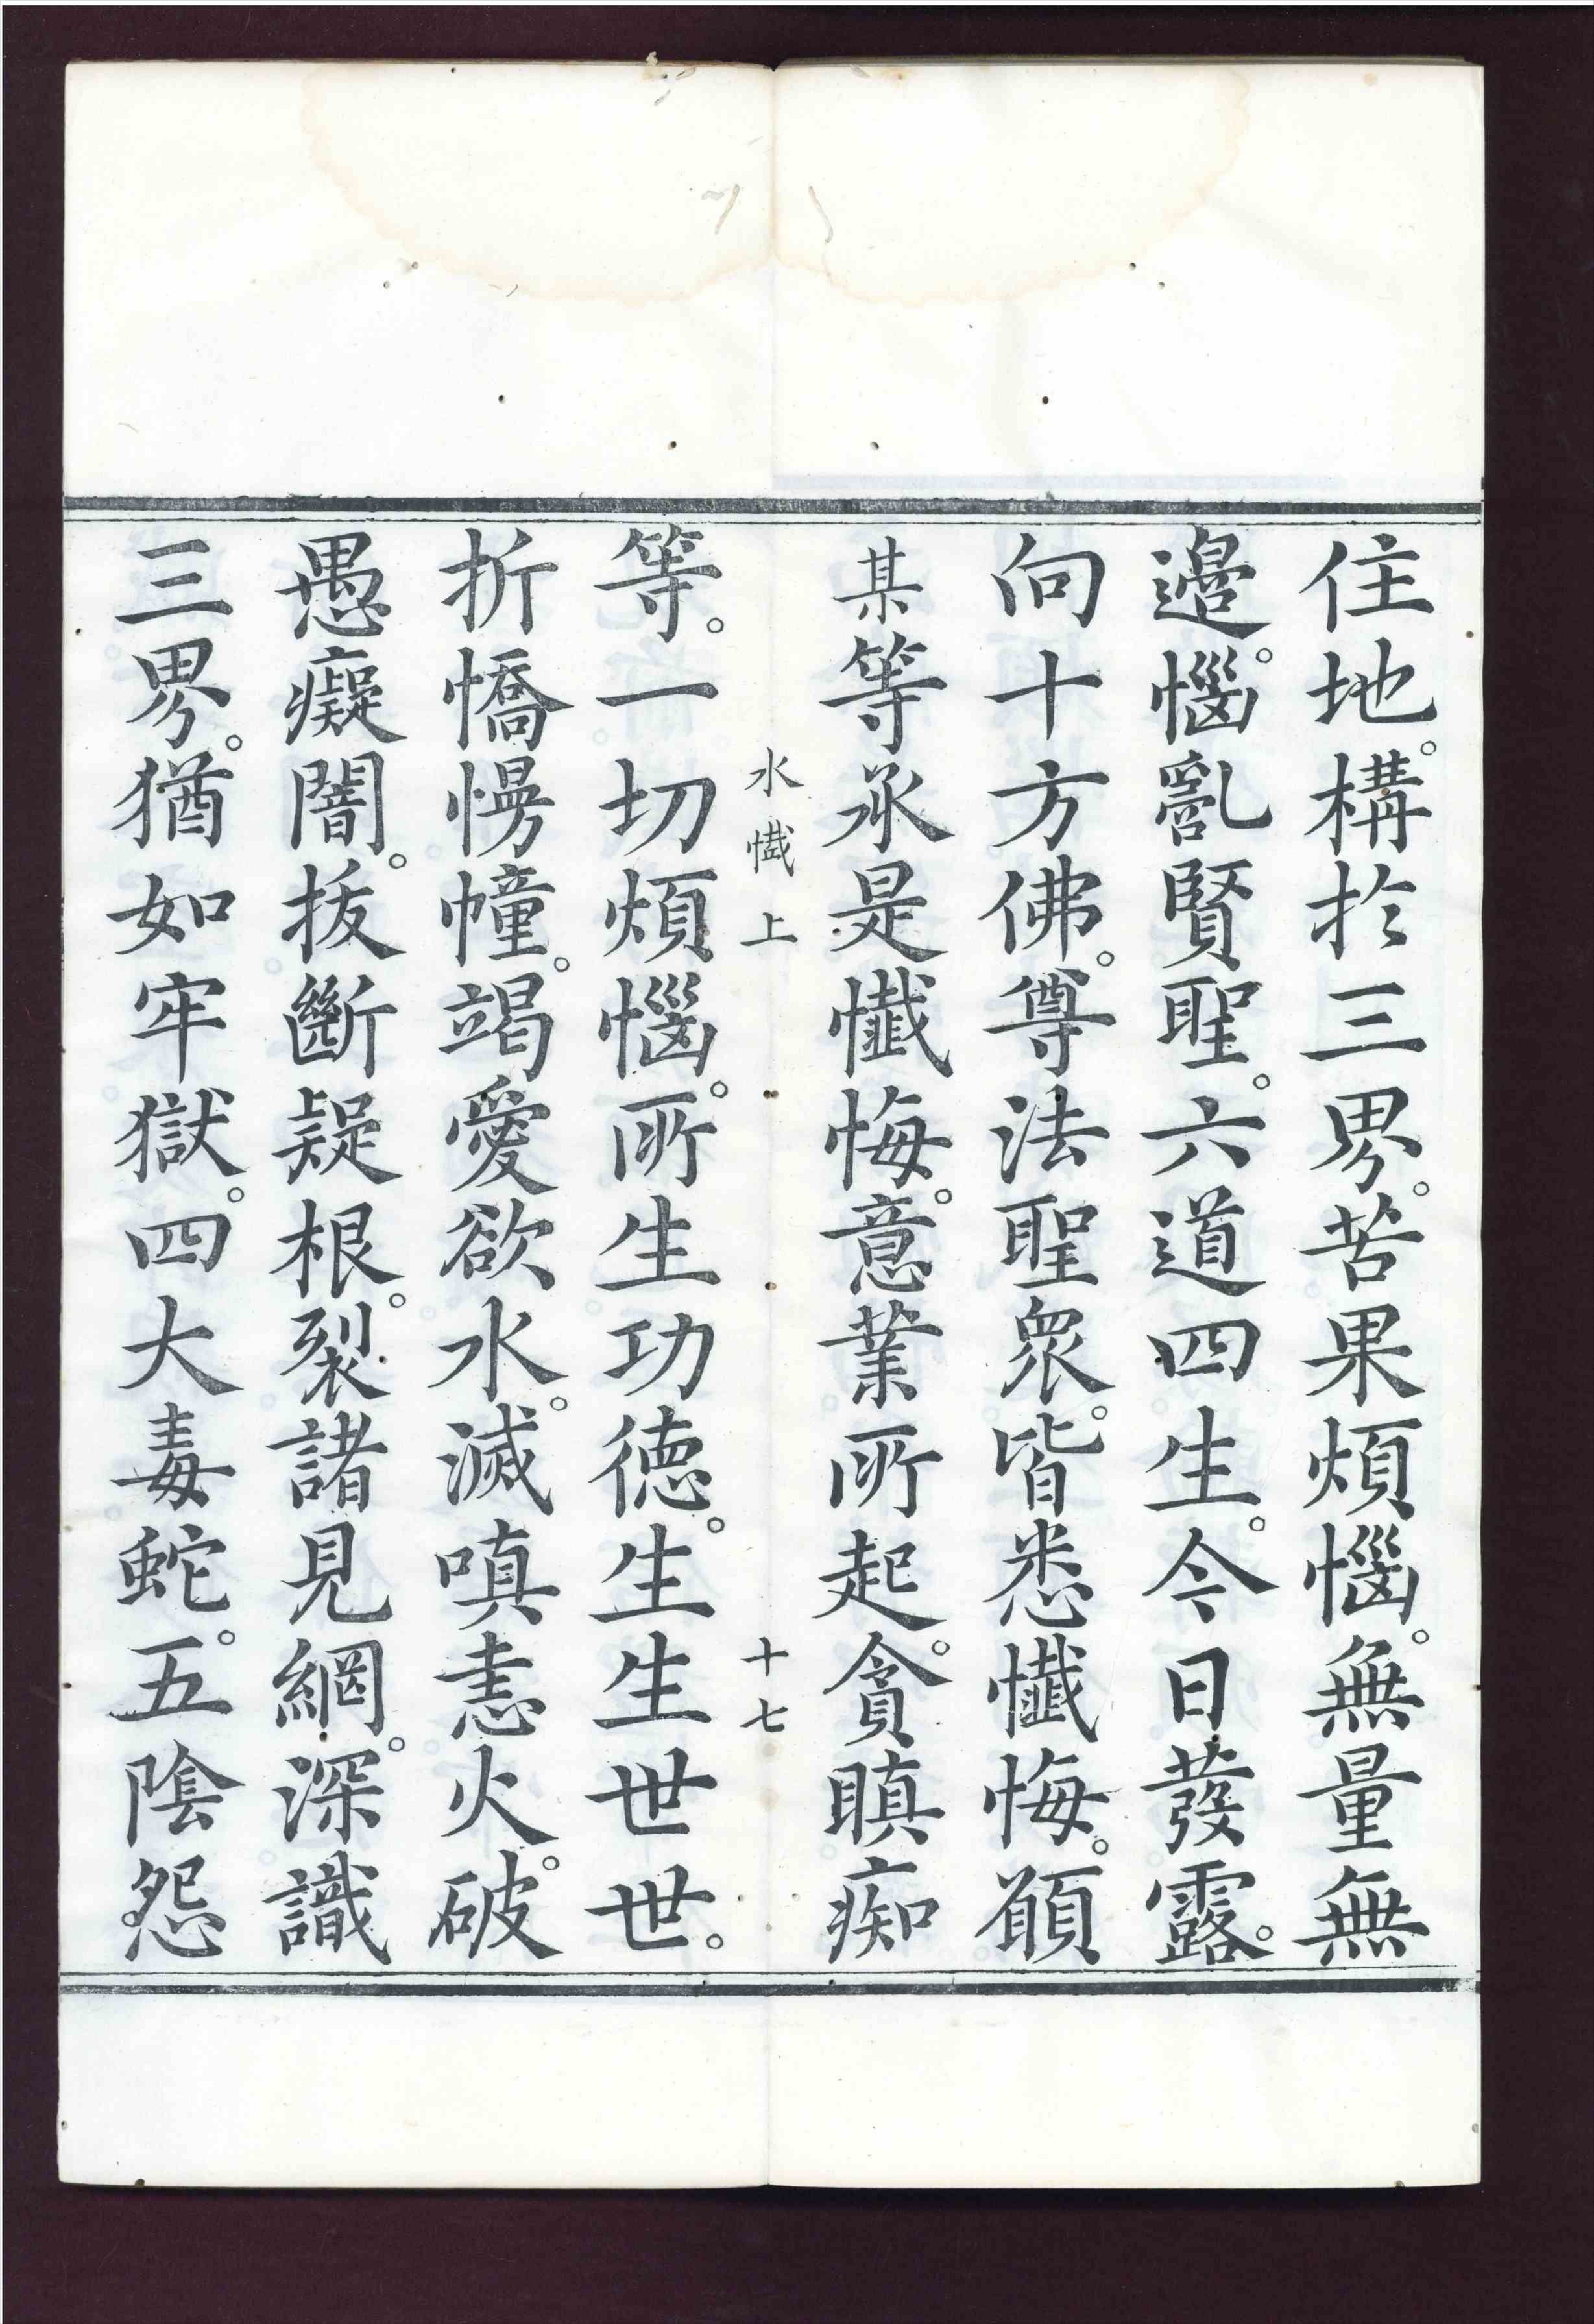 住地。構於三界。苦果煩惱。無量無
邊。惱亂賢聖。六道四生。今日發露。
向十方佛。尊法聖衆。皆悉懺悔。願
某等承是懺悔。意業所起。貪瞋痴
水懺上 十七
等。一切煩惱。所生功德。生生世世。
折憍慢幢。竭愛欲水。滅嗔恚火。破
愚癡闇。拔斷疑根。裂諸見網。深識
三界。猶如牢獄。四大毒蛇。五陰怨